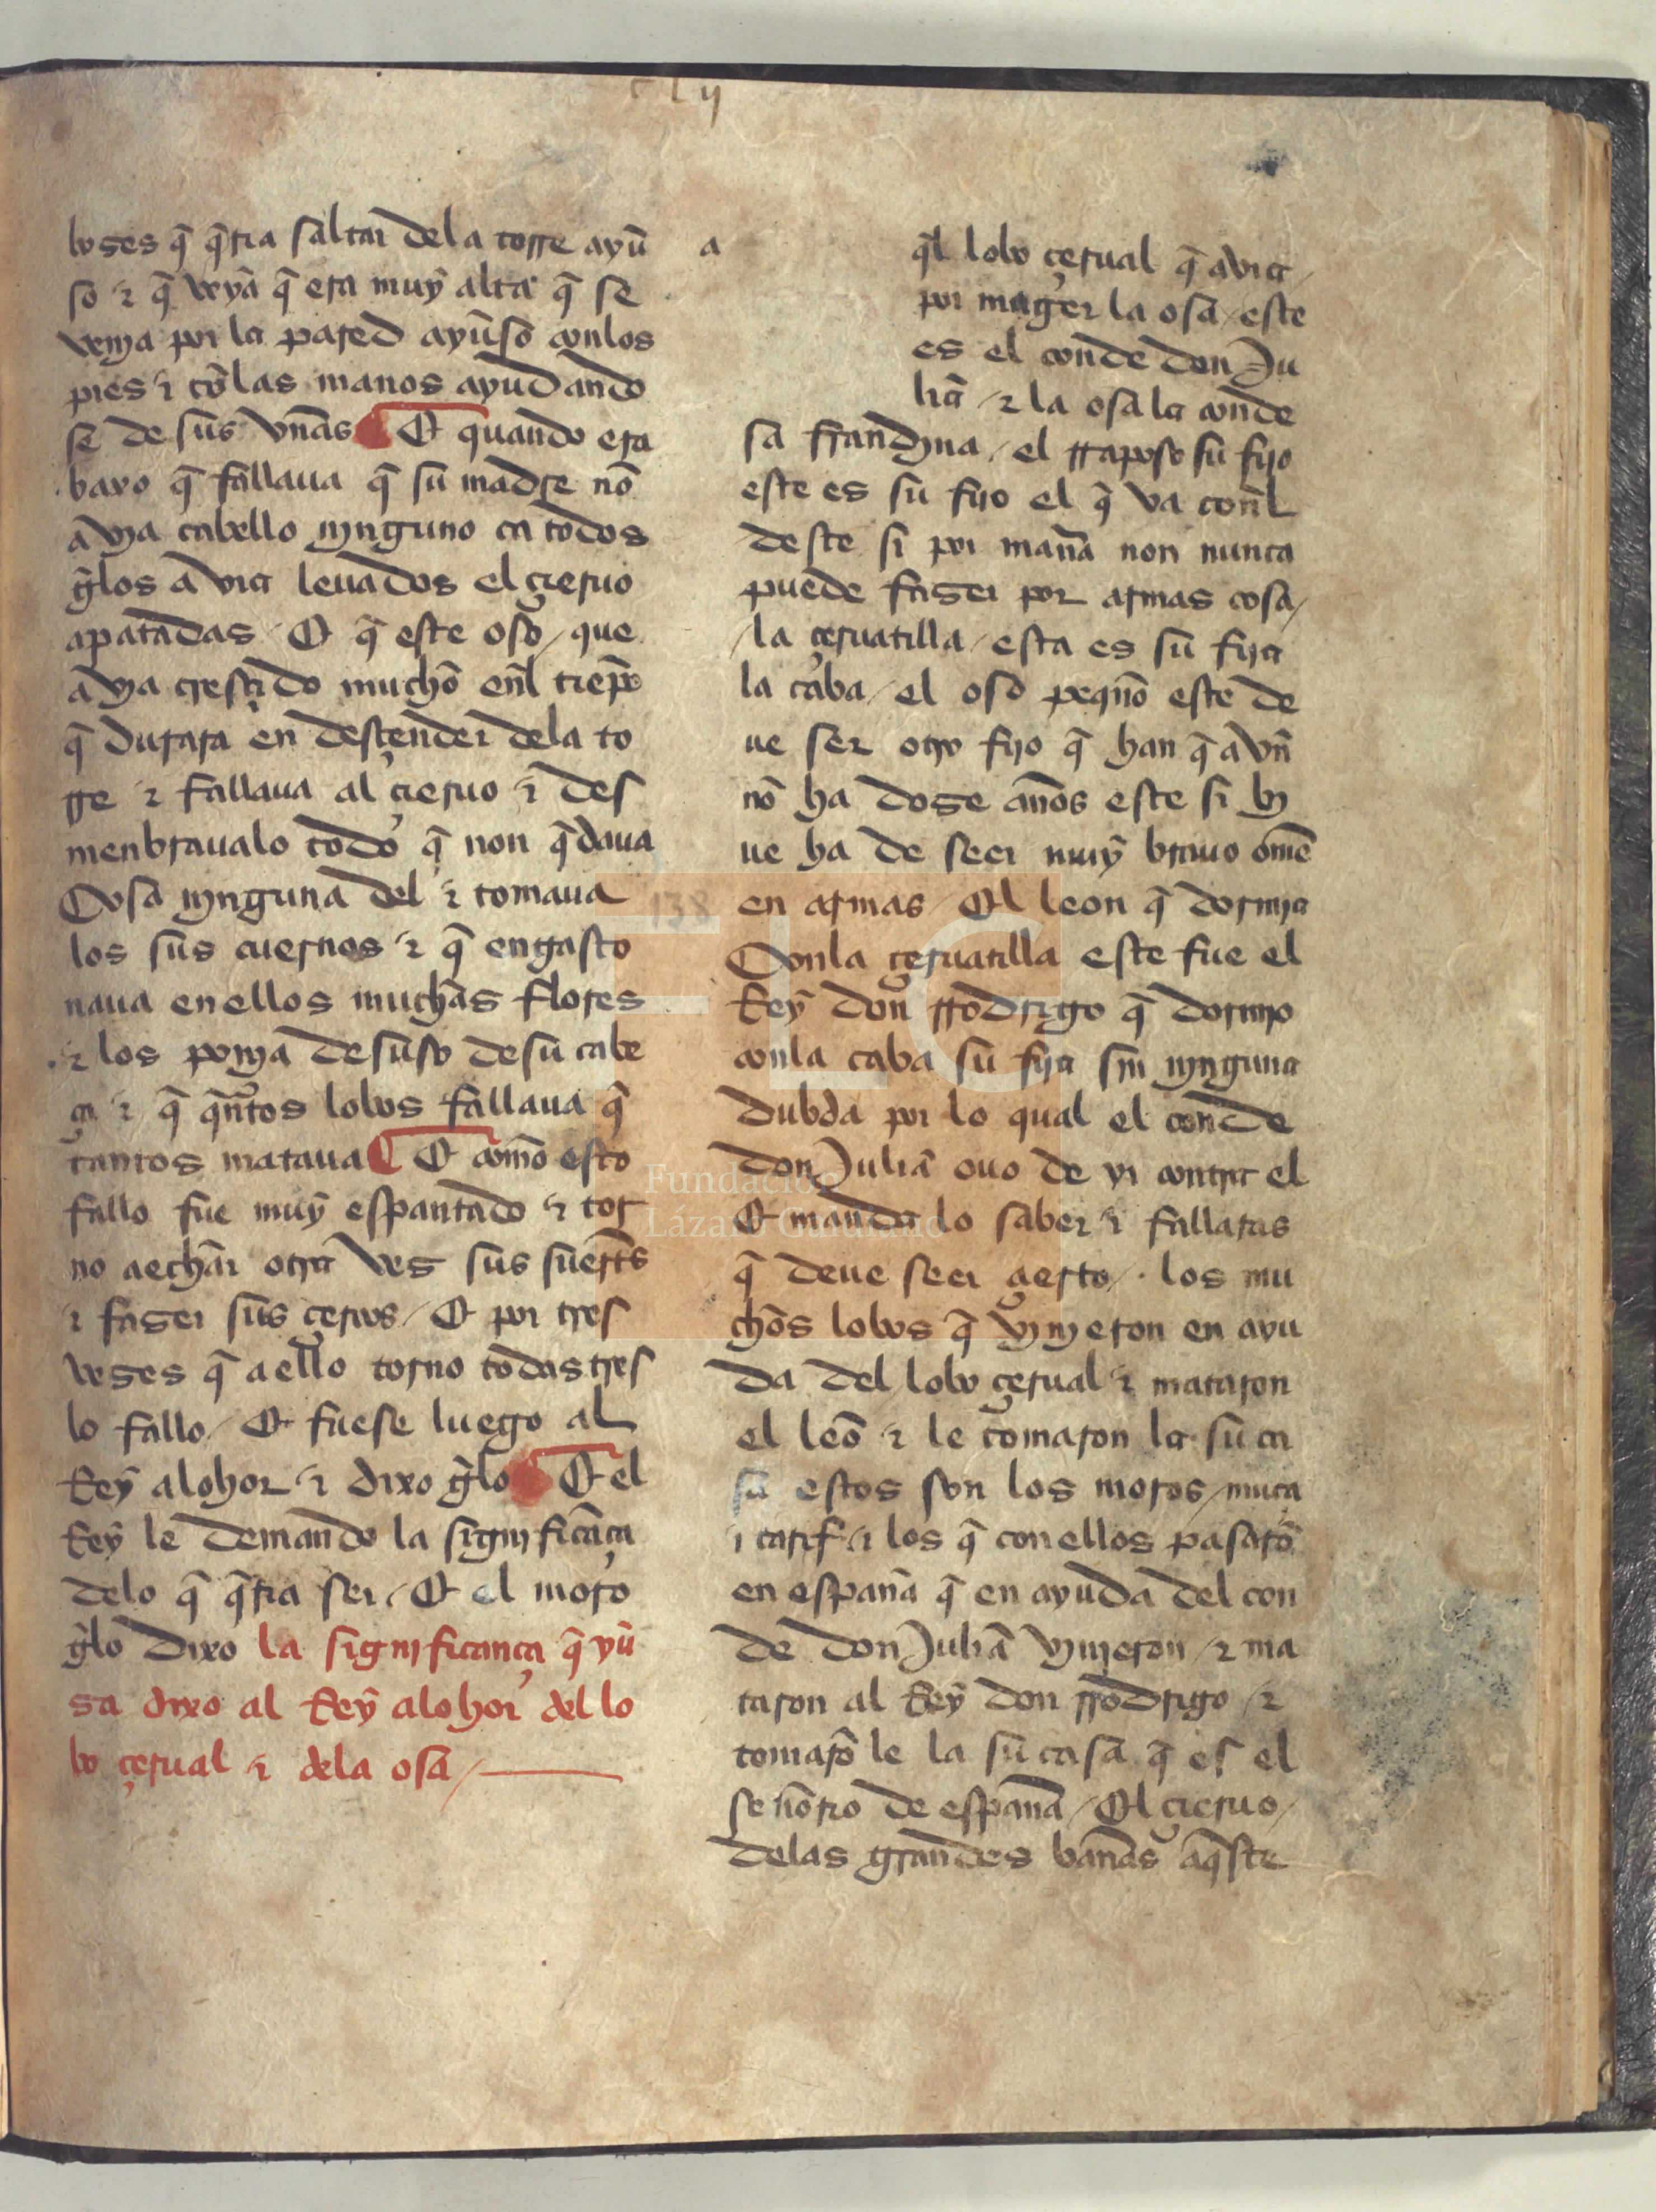 clij
bozes q̃ q̃ria saltar dela torre ayũ
so ⁊ q̃ veyã q̃ era muỹ alta q̃ se
venja por la pared ayũso conlos
pies ⁊ cõlas manos ayudando
se de sus vñas Et quando era
baxo q̃ fallaua q̃ su madre nõ
avya cabello njnguno ca todos
g̃los avia leuados el çieruo
apatadas / Et q̃ este oso / que
avya cresçido mucho enl̃ tienp̃o
q̃ durara en desçender dela to
rre ⁊ fallaua al çieruo ⁊ des
menbraualo todo q̃ non q̃daua
Cosa njnguna del ⁊ tomaua
los sus cuernos ⁊ q̃ engasto
naua enellos muchas flores
⁊ los ponja desuso desu cabe
ça ⁊ q̃ q̃ñtos lobos fallaua q̃
tantos mataua Et com̃o esto
fallo fue muỹ espantado ⁊ tor
no aechar otra vez sus suert̃s
⁊ fazer sus çercos / Et por tres
vezes q̃ aello torno todas tres
lo fallo / Et fuese luego al
Reỹ alohor ⁊ dixo g̃lo Et el
Reỹ le demando la signjficãça
delo q̃ q̃ria ser / Et el moro
g̃lo dixo la significança q̃ yũ
sa dixo al Reỹ alohor del lo
bo çerual ⁊ dela osa /
a
q̃l lobo çerual q̃ avia
por mug̃er la osa / este
es el conde don Ju
liã / ⁊ la osa la conde
sa frandjna / el rraposo su fijo
este es su fijo el q̃ va coñl
deste si por maña non nunca
puede fazer por armas cosa /
/ la çeruatilla / esta es su fija
la caba / el oso pequẽo este de
ue ser otro fijo q̃ han q̃ avñ
nõ ha doze años este si bj
ue ha de seer muỹ brauo om̃e
en armas / El leon q̃ dormja
Conla çeruatilla este fue el
Reỹ don rrodrigo q̃ dormjo
conla caba su fija sin njnguna
dubda por lo qual el conde
don Juliã ouo de yr contra el
Et manda lo saber ⁊ fallaras
q̃ deue seer çierto / los mu
chos lobos q̃ vjnjeron en ayu
da del lobo çerual ⁊ mataron
el leõ ⁊ le tomaron la su ca
sa estos son los moros / muça
⁊ tarif ⁊ los q̃ conellos pasarõ
en españa q̃ en ayuda del con
de don Juliã vjnjeron / ⁊ ma
taron al Reỹ don rrodrigo / ⁊
tomarõ le la su casa q̃ es el
señorio de españa / El çieruo /
delas grandes bañas aq̃ste
138
Fundación
Lázaro Galdiano